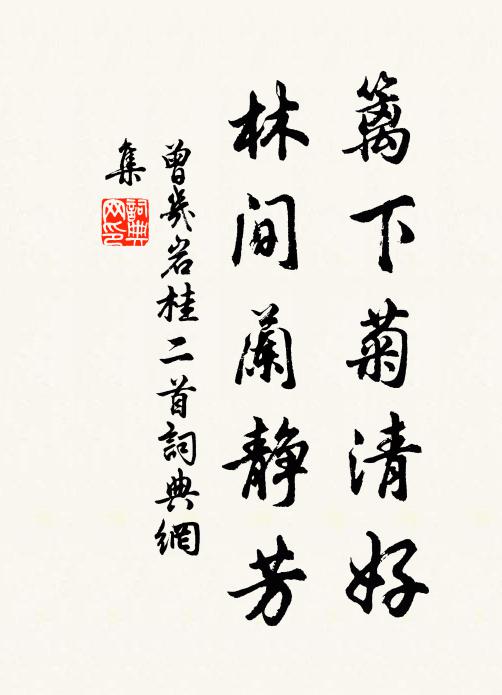 篱下菊清好
林间蘭静芳
曾幾岩桂二首詞典網
集
詞典
网印